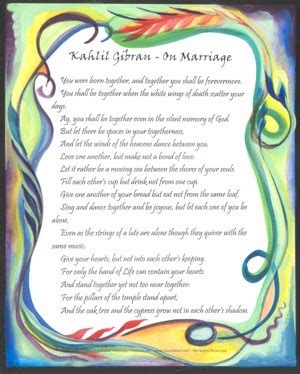 Kahlil Gibran - On Marriage
You were born together, and together you shall be forevermore.
You shall be together when the white wings of death scatter your
days.
Ay, you shall be together even in the silent memory of God.
But let there be spaces in your togetherness,
And let the winds of the heavens dance between you.
Love one another, but make not a bond of love:
Let it rather be a moving sea between the shores of your souls.
Fill each other's cup but drink not from one cup.
Give one another of your bread but eat not from the same loaf.
Sing and dance together and be joyous, but let each one of you be
alone,
Even as the strings of a lute are alone though they quiver with the
same music.
Give your hearts, but not into each other's keeping.
For only the hand of Life can contain your hearts.
And stand together yet not too near together:
For the pillars of the temple stand apart,
And the oak tree and the cypress grow not in each other's shadow.
All Rights Reserved